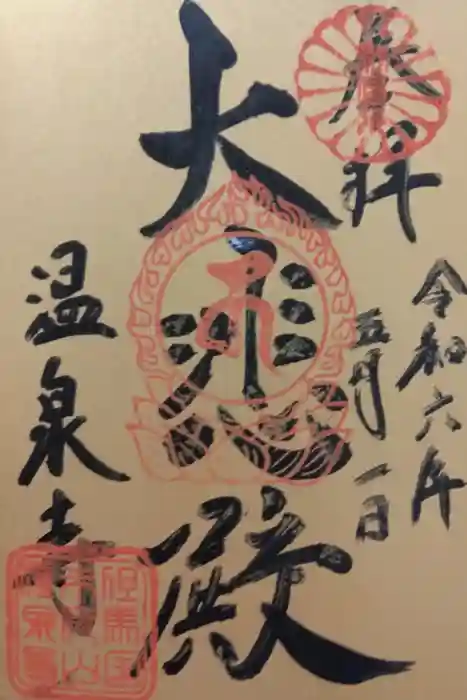 奉拝
令和六年
五月一日
大悲殿
温泉寺